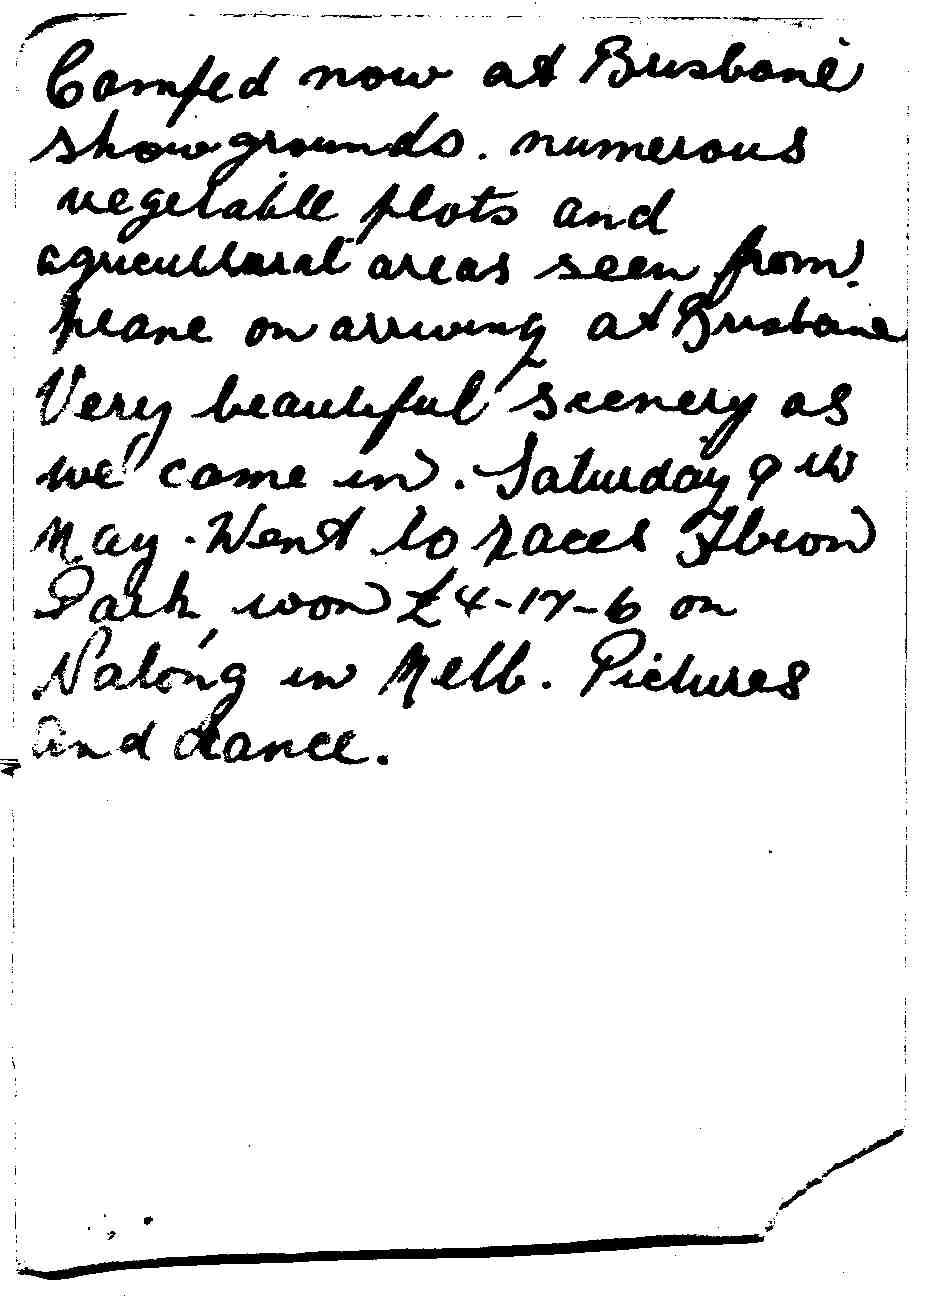 Camped now at Brisbane
showgrounds. numerous
vegetable plots and
agricultural areas seen from
plane on arriving at Brisbane
Very beautiful scenery as
we came in. Saturday 9th
May. Went to races Albion
Park won £4-17-6 on
Nalong in Melb. Pictures
and dance.